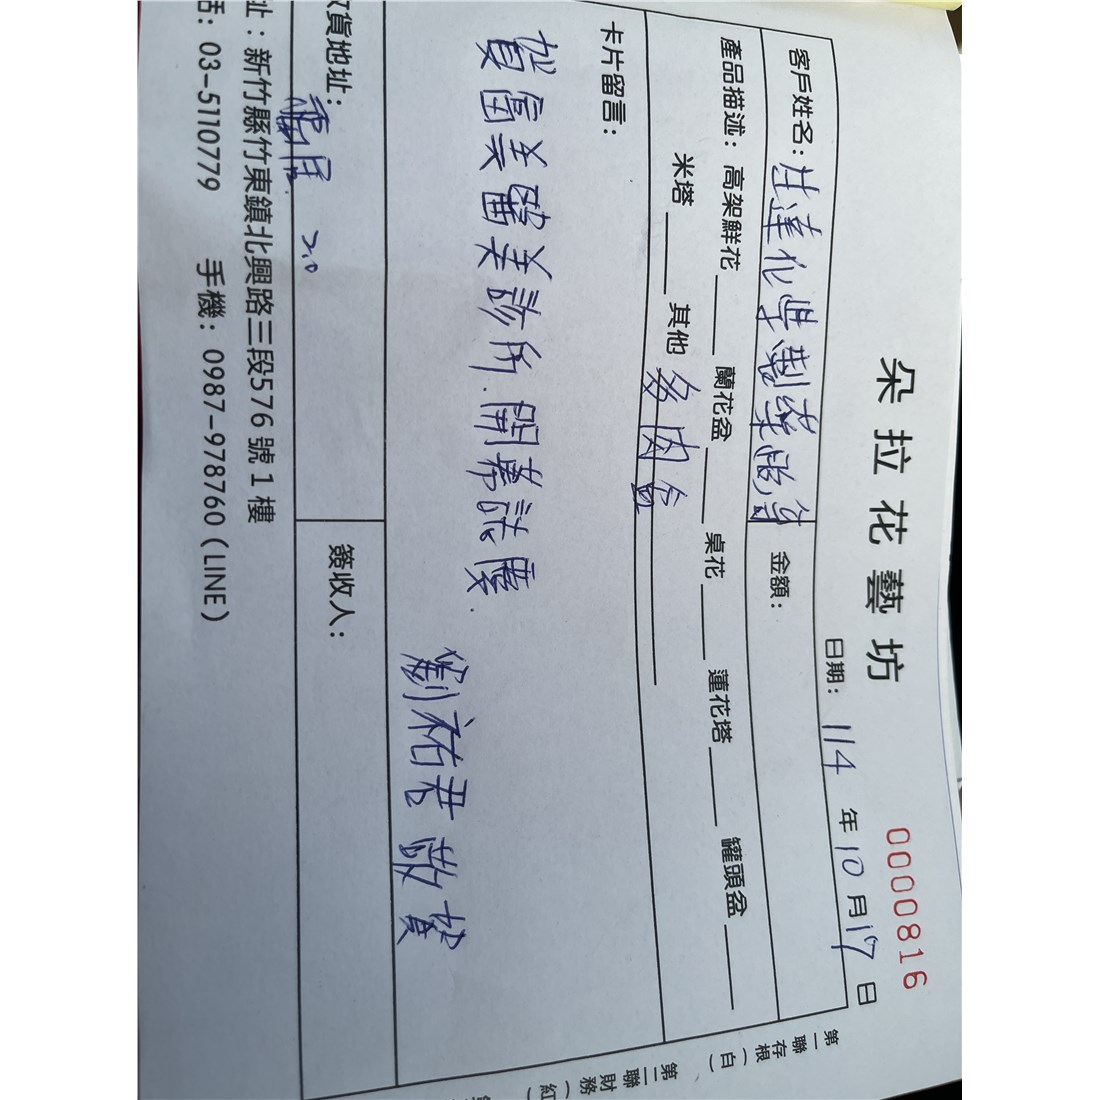 朵拉花藝坊
0000816
日期: 114 年 10 月 17 日
客戶姓名: 生達化學製藥 金額:
產品描述: 高架鮮花____ 蘭花盆____ 桌花____ 蓮花塔____ 罐頭盆____
米塔____ 其他 多肉盆
卡片留言:
賀 富美醫美診所 開幕誌慶
劉祐君 敬賀
貨地址: 簽收人:
址: 新竹縣竹東鎮北興路三段576 號 1 樓
話: 03-5110779 手機: 0987-978760 (LINE)
第一聯 存根(白)
第二聯財務(紅